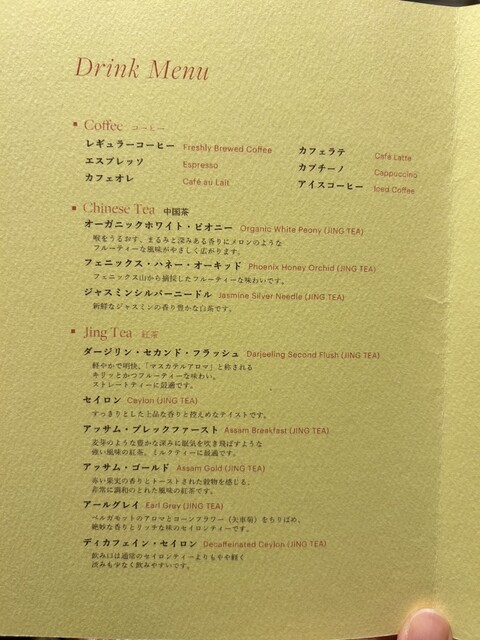 Drink Menu
Coffee コーヒー
レギュラーコーヒー Freshly Brewed Coffee
エスプレッソ Espresso
カフェオレ Café au Lait
カフェラテ Café Latte
カプチーノ Cappuccino
アイスコーヒー Iced Coffee
Chinese Tea 中国茶
オーガニックホワイト・ピオニー Organic White Peony (JING TEA)
喉をうるおす、まるみと深みある香りにメロンのような
フルーティーな風味がやさしく広がります。
フェニックス・ハネー・オーキッド Phoenix Honey Orchid (JING TEA)
フェニックス山から摘採したフルーティーな味わいです。
ジャスミンシルバーニードル Jasmine Silver Needle (JING TEA)
新鮮なジャスミンの香り豊かな白茶です。
Jing Tea 紅茶
ダージリン・セカンド・フラッシュ Darjeeling Second Flush (JING TEA)
軽やかで明快、「マスカテルアロマ」と称される
キリッとかつフルーティーな味わい。
ストレートティーに最適です。
セイロン Ceylon (JING TEA)
すっきりとした上品な香りと控えめなテイストです。
アッサム・ブレックファースト Assam Breakfast (JING TEA)
麦芽のような豊かな深みに眠気を吹き飛ばすような
強い風味の紅茶。ミルクティーに最適です。
アッサム・ゴールド Assam Gold (JING TEA)
赤い果実の香りとトーストされた穀物を感じる、
非常に調和のとれた風味の紅茶です。
アールグレイ Earl Grey (JING TEA)
ベルガモットのアロマとコーンフラワー（矢車菊）をちりばめ、
絶妙な香りとリッチな味のセイロンティーです。
ディカフェイン・セイロン Decaffeinated Ceylon (JING TEA)
飲み口は通常のセイロンティーよりもやや軽く
渋みも少なく飲みやすいです。